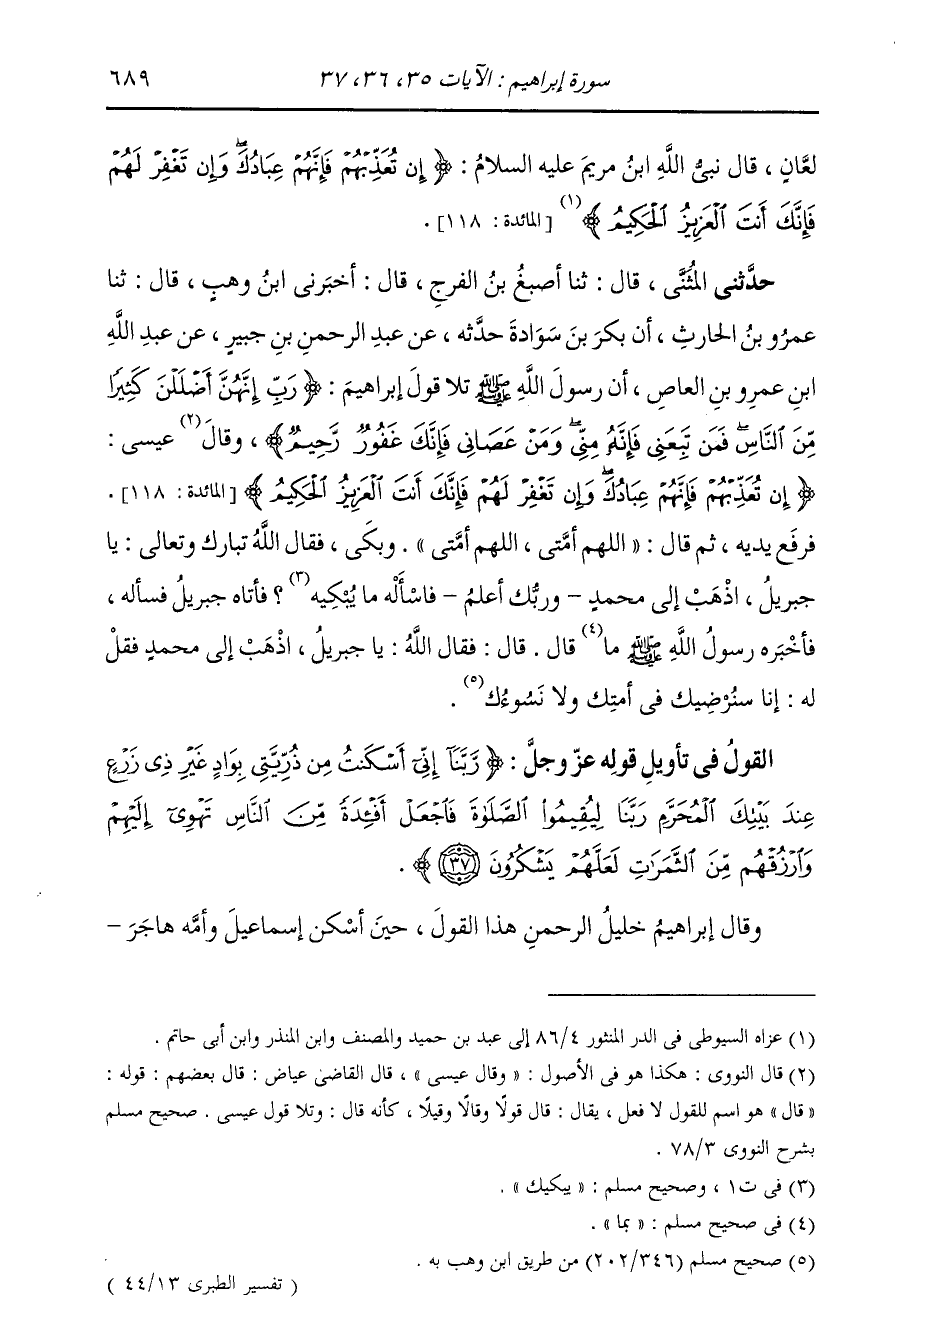 سورة إبراهيم : الآيات ٣٥، ٣٦، ٣٧ ٦٨٩
لعَّانٍ ، قال نبيُّ اللَّهِ ابنُ مريمَ عليه السلامُ : ﴿ إِن تُعَذِّبْهُمْ فَإِنَّهُمْ عِبَادُكَۖ وَإِن تَغْفِرْ لَهُمْ
فَإِنَّكَ أَنتَ ٱلْعَزِيزُ ٱلْحَكِيمُ ﴾(١) [المائدة : ١١٨] .
حدَّثنى المُثَنَّى ، قال : ثنا أصبغُ بنُ الفرجِ ، قال : أخبَرنى ابنُ وهبٍ ، قال : ثنا
عمرُو بنُ الحارثِ ، أن بكرَ بنَ سَوَادةَ حدَّثه ، عن عبدِ الرحمنِ بنِ جبيرٍ ، عن عبدِ اللَّهِ
ابنِ عمرِو بنِ العاصِ ، أن رسولَ اللَّهِ ﷺ تلا قولَ إبراهيمَ : ﴿ رَبِّ إِنَّهُنَّ أَضْلَلْنَ كَثِيرًا
مِّنَ ٱلنَّاسِۖ فَمَن تَبِعَنِى فَإِنَّهُۥ مِنِّىۖ وَمَنْ عَصَانِى فَإِنَّكَ غَفُورٌ رَّحِيمٌ ﴾ ، وقالَ(٢) عيسى :
﴿ إِن تُعَذِّبْهُمْ فَإِنَّهُمْ عِبَادُكَۖ وَإِن تَغْفِرْ لَهُمْ فَإِنَّكَ أَنتَ ٱلْعَزِيزُ ٱلْحَكِيمُ ﴾ [المائدة : ١١٨] .
فرفَع يديه ، ثم قال : « اللهم أمَّتى ، اللهم أمَّتى » . وبكَى ، فقال اللَّهُ تبارك وتعالى : يا
جبريلُ ، اذْهَبْ إلى محمدٍ – وربُّك أعلمُ – فاسْأَلْه ما يُبْكِيه(٣) ؟ فأتاه جبريلُ فسأله ،
فأخْبَره رسولُ اللَّهِ ﷺ ما(٤) قال . قال : فقال اللَّهُ : يا جبريلُ ، اذْهَبْ إلى محمدٍ فقلْ
له : إنا سنُرْضِيك فى أمتِك ولا نَسُوءُك(٥) .
القولُ فى تأويلِ قولِه عزّ وجلَّ : ﴿ رَّبَّنَآ إِنِّىٓ أَسْكَنتُ مِن ذُرِّيَّتِى بِوَادٍ غَيْرِ ذِى زَرْعٍ
عِندَ بَيْتِكَ ٱلْمُحَرَّمِ رَبَّنَا لِيُقِيمُوا۟ ٱلصَّلَوٰةَ فَٱجْعَلْ أَفْـِٔدَةً مِّنَ ٱلنَّاسِ تَهْوِىٓ إِلَيْهِمْ
وَٱرْزُقْهُم مِّنَ ٱلثَّمَرَٰتِ لَعَلَّهُمْ يَشْكُرُونَ ٣٧ ﴾ .
وقال إبراهيمُ خليلُ الرحمنِ هذا القولَ ، حينَ أسْكن إسماعيلَ وأمَّه هاجَرَ –
(١) عزاه السيوطى فى الدر المنثور ٨٦/٤ إلى عبد بن حميد والمصنف وابن المنذر وابن أبى حاتم .
(٢) قال النووى : هكذا هو فى الأصول : « وقال عيسى » ، قال القاضى عياض : قال بعضهم : قوله :
« قال » هو اسم للقول لا فعل ، يقال : قال قولًا وقالًا وقيلًا ، كأنه قال : وتلا قول عيسى . صحيح مسلم
بشرح النووى ٧٨/٣ .
(٣) فى ت١ ، وصحيح مسلم : « يبكيك » .
(٤) فى صحيح مسلم : « بما » .
(٥) صحيح مسلم (٢٠٢/٣٤٦) من طريق ابن وهب به .
( تفسير الطبرى ٤٤/١٣ )